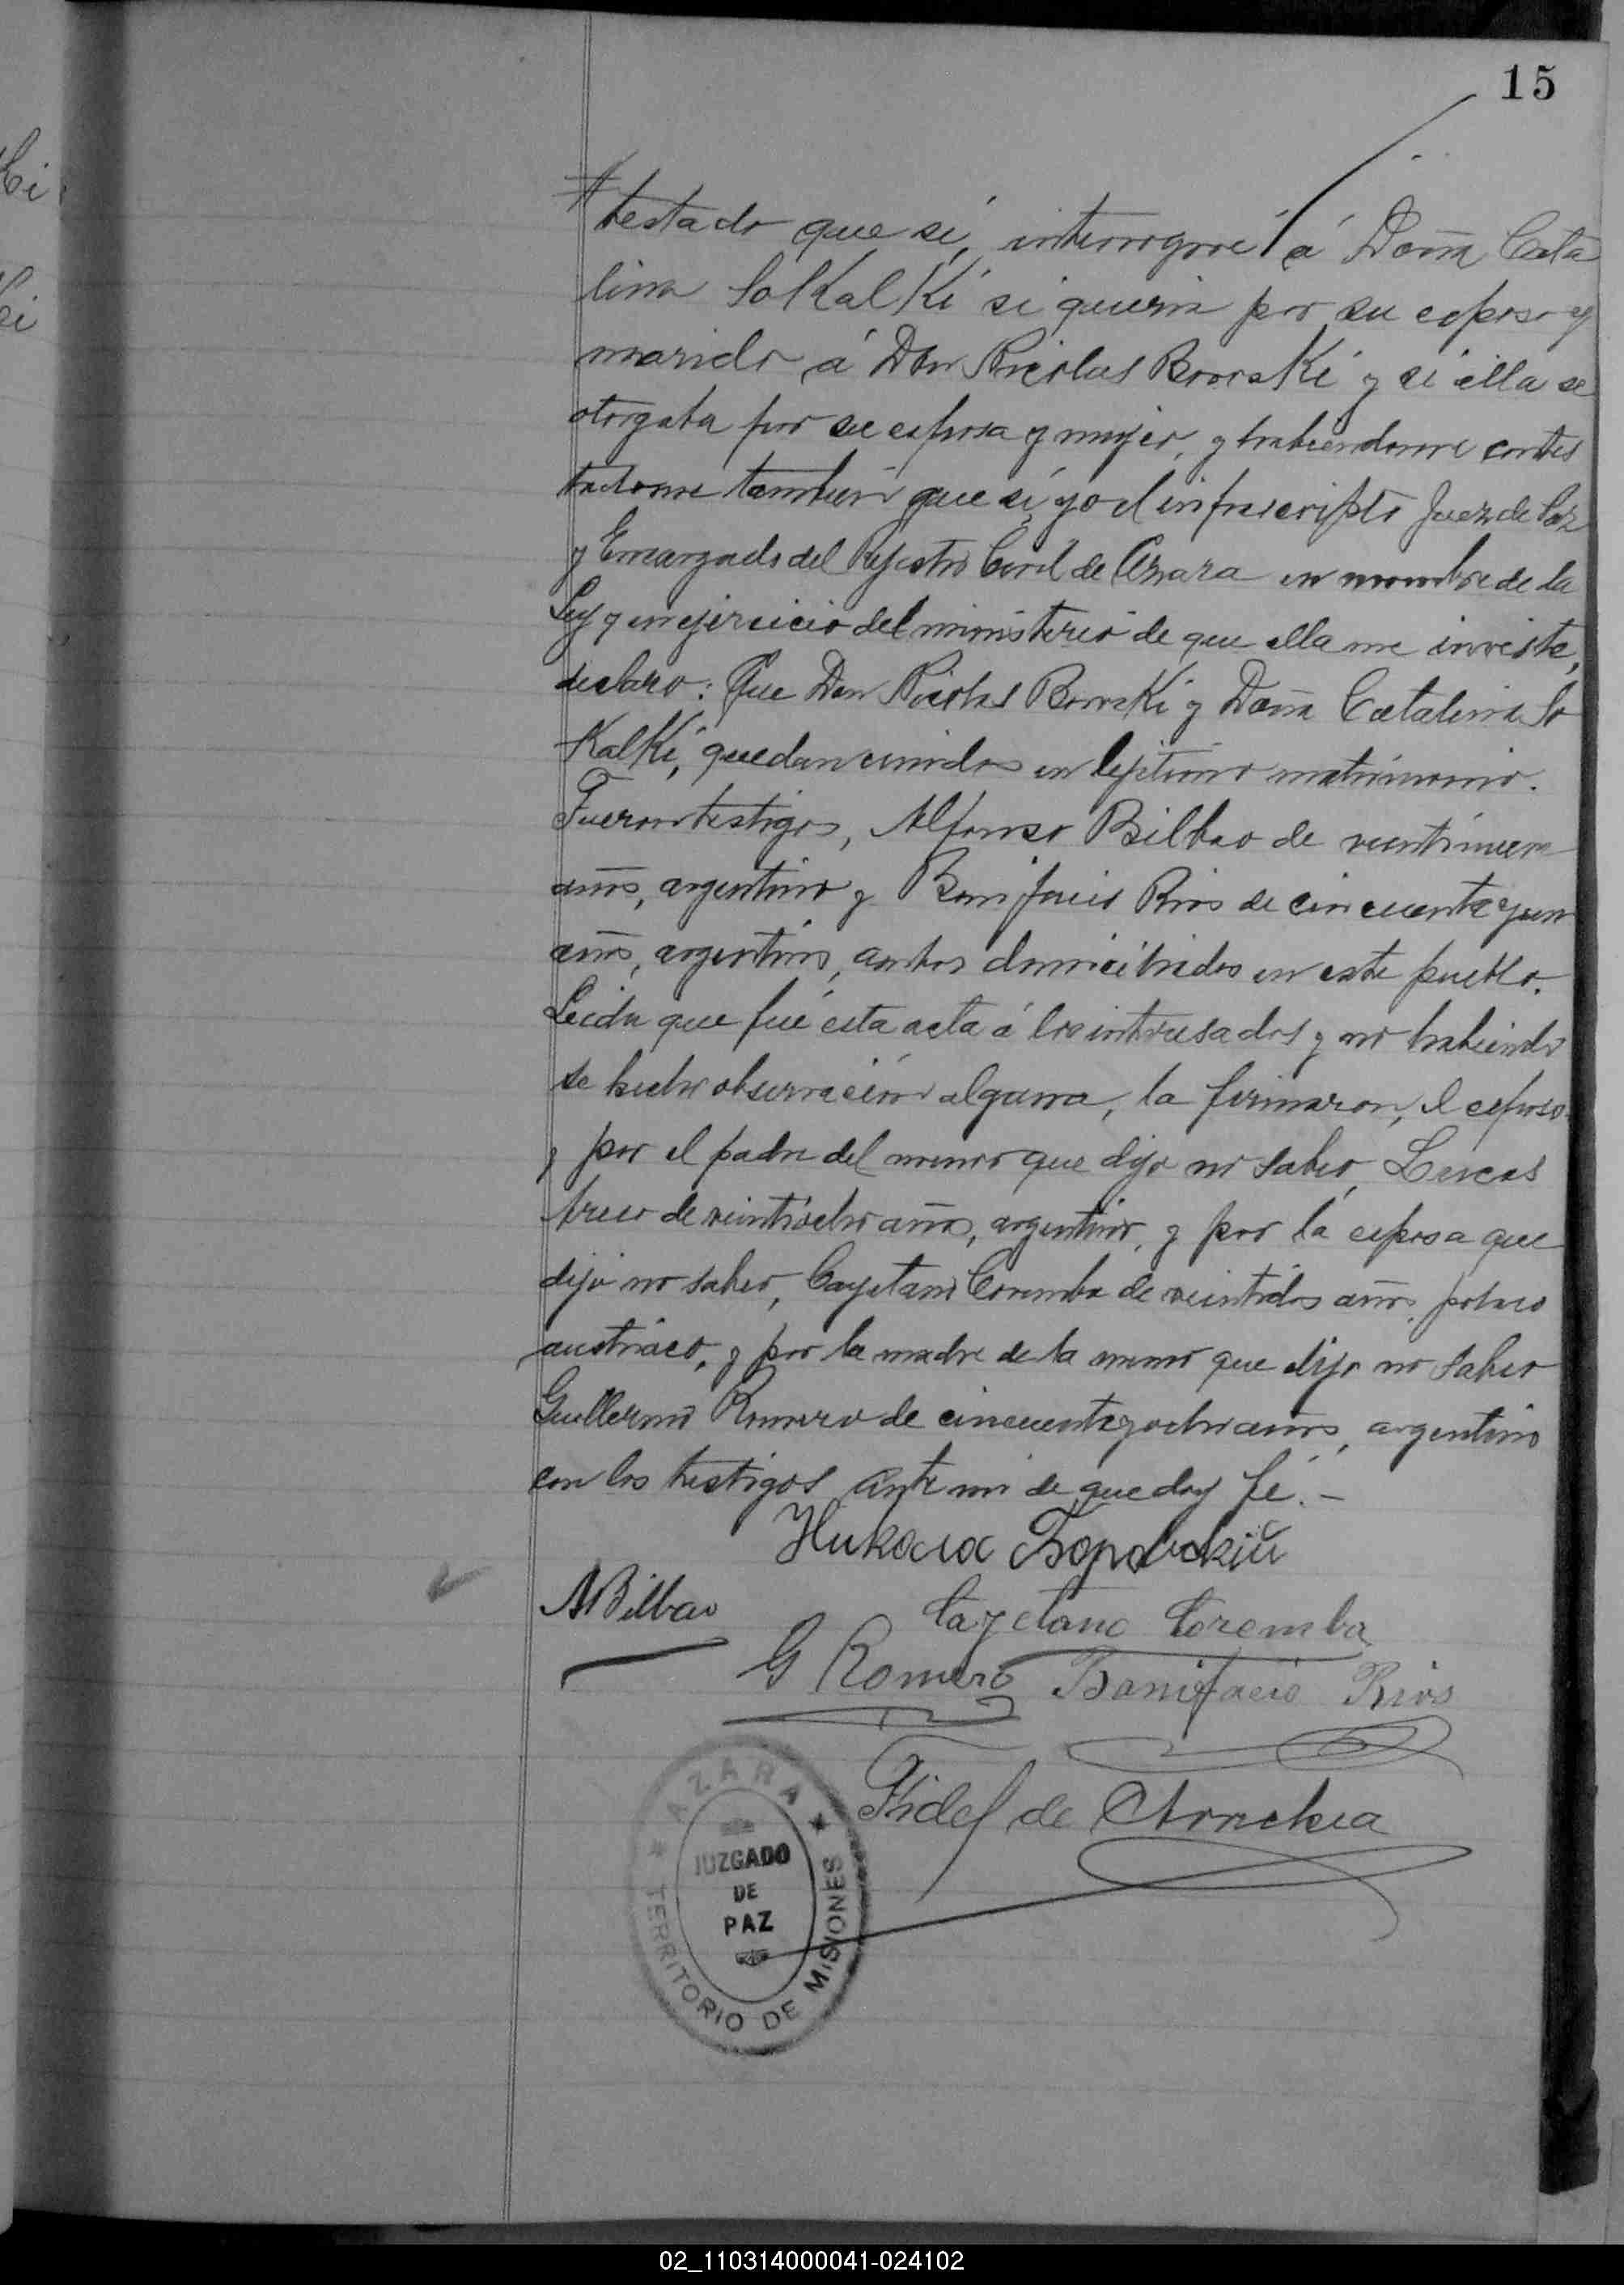 15
testado que sí, interrogué á Doña Cata
lina Sokalki si queria por su esposo y
marido á Don Nicolas Borovski y si ella se
otorgaba por su esposa y mujer, y habiendome contes
tadome tambien que sí, yo el infrascripto Juez de Paz
y Encargado del Rejistro Civil de Azara en nombre de la
Ley y en ejercicio del ministerio de que ella me inviste,
declaro: Que Don Nicolas Borovski y Doña Catalina So
Kalki, quedan unidos en lejitimo matrimonio.
Fueron testigos, Alfonso Bilbao de veintinueve
años, argentino y Bonifacio Rios de cincuenta y un
años, argentino, ambos domiciliados en este pueblo.
Leida que fué esta acta á los interesados y no habiendo
se hecho observacion alguna, la firmaron, el esposo
y por el padre del menor que dijo no saber, Lucas
de veintiocho años, argentino, y por la esposa que
dijo no saber, Cayetano Coremba de veintidos años, polaco
austriaco, y por la madre de la menor que dijo no saber
Guillermo Romero de cincuenta y ocho años, argentino
con los testigos ante mi de que doy fé. -
Никола Боровскій
ABilbao
Cayetano Coremba
G Romero Bonifacio Rios
Fidel de
AZARA
JUZGADO
DE
PAZ
TERRITORIO DE MISIONES
02_110314000041-024102